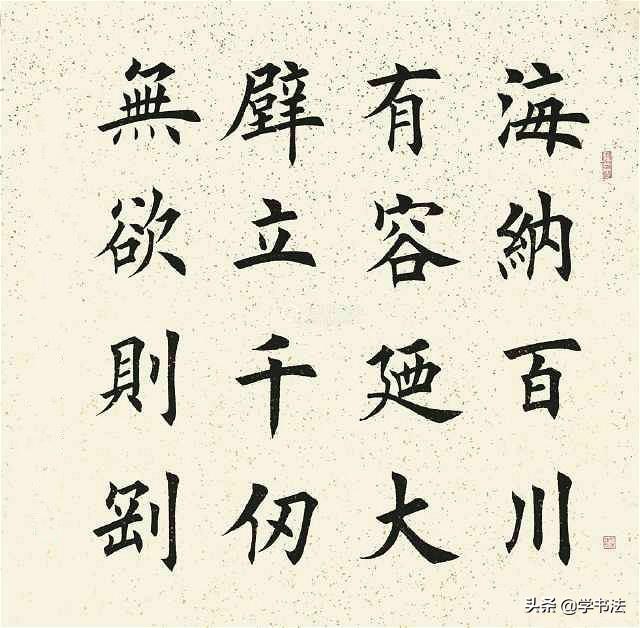 海納百川
有容廼大
壁立千仞
無欲則剛
头条 @学书法